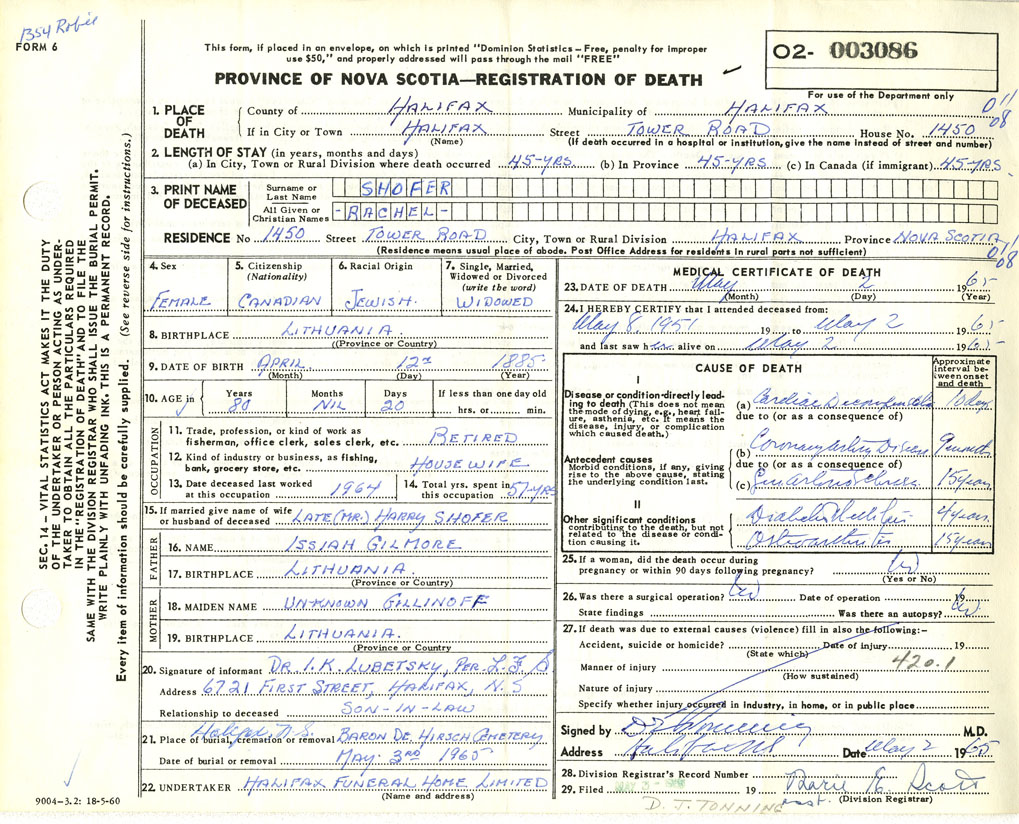 1354 Robie
FORM 6
This form, if placed in an envelope, on which is printed "Dominion Statistics – Free, penalty for improper
use $50," and properly addressed will pass through the mail "FREE"
PROVINCE OF NOVA SCOTIA—REGISTRATION OF DEATH
02- 003086
For use of the Department only
1. PLACE OF DEATH
County of HALIFAX Municipality of HALIFAX
If in City or Town HALIFAX Street TOWER ROAD House No. 1450
(Name) (If death occurred in a hospital or institution, give the name instead of street and number)
011
08
2. LENGTH OF STAY (in years, months and days)
(a) In City, Town or Rural Division where death occurred 45-YRS (b) In Province 45-YRS. (c) In Canada (if immigrant) 45-YRS.
3. PRINT NAME OF DECEASED
Surname or Last Name SHOFER
All Given or Christian Names -RACHEL-
RESIDENCE No 1450 Street TOWER ROAD City, Town or Rural Division HALIFAX Province NOVA SCOTIA
(Residence means usual place of abode. Post Office Address for residents in rural parts not sufficient)
011
08
4. Sex
FEMALE
5. Citizenship
(Nationality)
CANADIAN
6. Racial Origin
JEWISH.
7. Single, Married,
Widowed or Divorced
(write the word)
WIDOWED
8. BIRTHPLACE LITHUANIA.
(Province or Country)
9. DATE OF BIRTH APRIL 12th 1885
(Month) (Day) (Year)
10. AGE in
Years 80
Months NIL
Days 20
If less than one day old
hrs. or min.
OCCUPATION
11. Trade, profession, or kind of work as
fisherman, office clerk, sales clerk, etc. RETIRED
12. Kind of industry or business, as fishing,
bank, grocery store, etc. HOUSEWIFE
13. Date deceased last worked
at this occupation 1964
14. Total yrs. spent in
this occupation 57-YRS
15. If married give name of wife
or husband of deceased LATE (MR.) HARRY SHOFER
FATHER
16. NAME ISSIAH GILMORE
17. BIRTHPLACE LITHUANIA.
(Province or Country)
MOTHER
18. MAIDEN NAME UNKNOWN GILLINOFF
19. BIRTHPLACE LITHUANIA.
(Province or Country)
20. Signature of informant DR. I.K. LUBETSKY, PER. L.F.S
Address 6721 FIRST STREET, HALIFAX, N.S
Relationship to deceased SON-IN-LAW
21. Place of burial, cremation or removal Halifax N.S. BARON DE. HIRSCH CEMETERY
Date of burial or removal MAY. 3RD 1965
22. UNDERTAKER HALIFAX FUNERAL HOME LIMITED
(Name and address)
MEDICAL CERTIFICATE OF DEATH
23. DATE OF DEATH May 2 1965
(Month) (Day) (Year)
24. I HEREBY CERTIFY that I attended deceased from:
May 8, 1951 19 to May 2 1965
and last saw her alive on May 2 1965
CAUSE OF DEATH
Approximate interval between onset and death
I
Disease or condition directly leading to death (This does not mean the mode of dying, e.g., heart failure, asthenia, etc. It means the disease, injury, or complication which caused death.)
(a) Cardiac Decompensation 10 days
due to (or as a consequence of)
Antecedent causes
Morbid conditions, if any, giving rise to the above cause, stating the underlying condition last.
(b) Coronary Artery Disease 9 months
due to (or as a consequence of)
(c) 15 years
II
Other significant conditions
contributing to the death, but not related to the disease or condition causing it.
Diabetes Mellitus 4 years
Osteoarthritis 15 years
25. If a woman, did the death occur during
pregnancy or within 90 days following pregnancy? No
(Yes or No)
26. Was there a surgical operation? No Date of operation 19
State findings Was there an autopsy? No
27. If death was due to external causes (violence) fill in also the following:–
Accident, suicide or homicide? Date of injury 19
(State which)
Manner of injury 420.1
(How sustained)
Nature of injury
Specify whether injury occurred in industry, in home, or in public place
Signed by M.D.
Address Date May 2 1965
28. Division Registrar's Record Number
29. Filed MAY 3 - 19 Marie E. Scott
asst. (Division Registrar)
D. J. TONNING
SEC. 14 – VITAL STATISTICS ACT MAKES IT THE DUTY
OF THE UNDERTAKER OR PERSON ACTING AS UNDER-
TAKER TO OBTAIN ALL THE PARTICULARS REQUIRED
IN THE "REGISTRATION OF DEATH" AND TO FILE THE
SAME WITH THE DIVISION REGISTRAR WHO SHALL ISSUE THE BURIAL PERMIT.
WRITE PLAINLY WITH UNFADING INK. THIS IS A PERMANENT RECORD.
Every item of information should be carefully supplied. (See reverse side for instructions.)
9004-3.2: 18-5-60